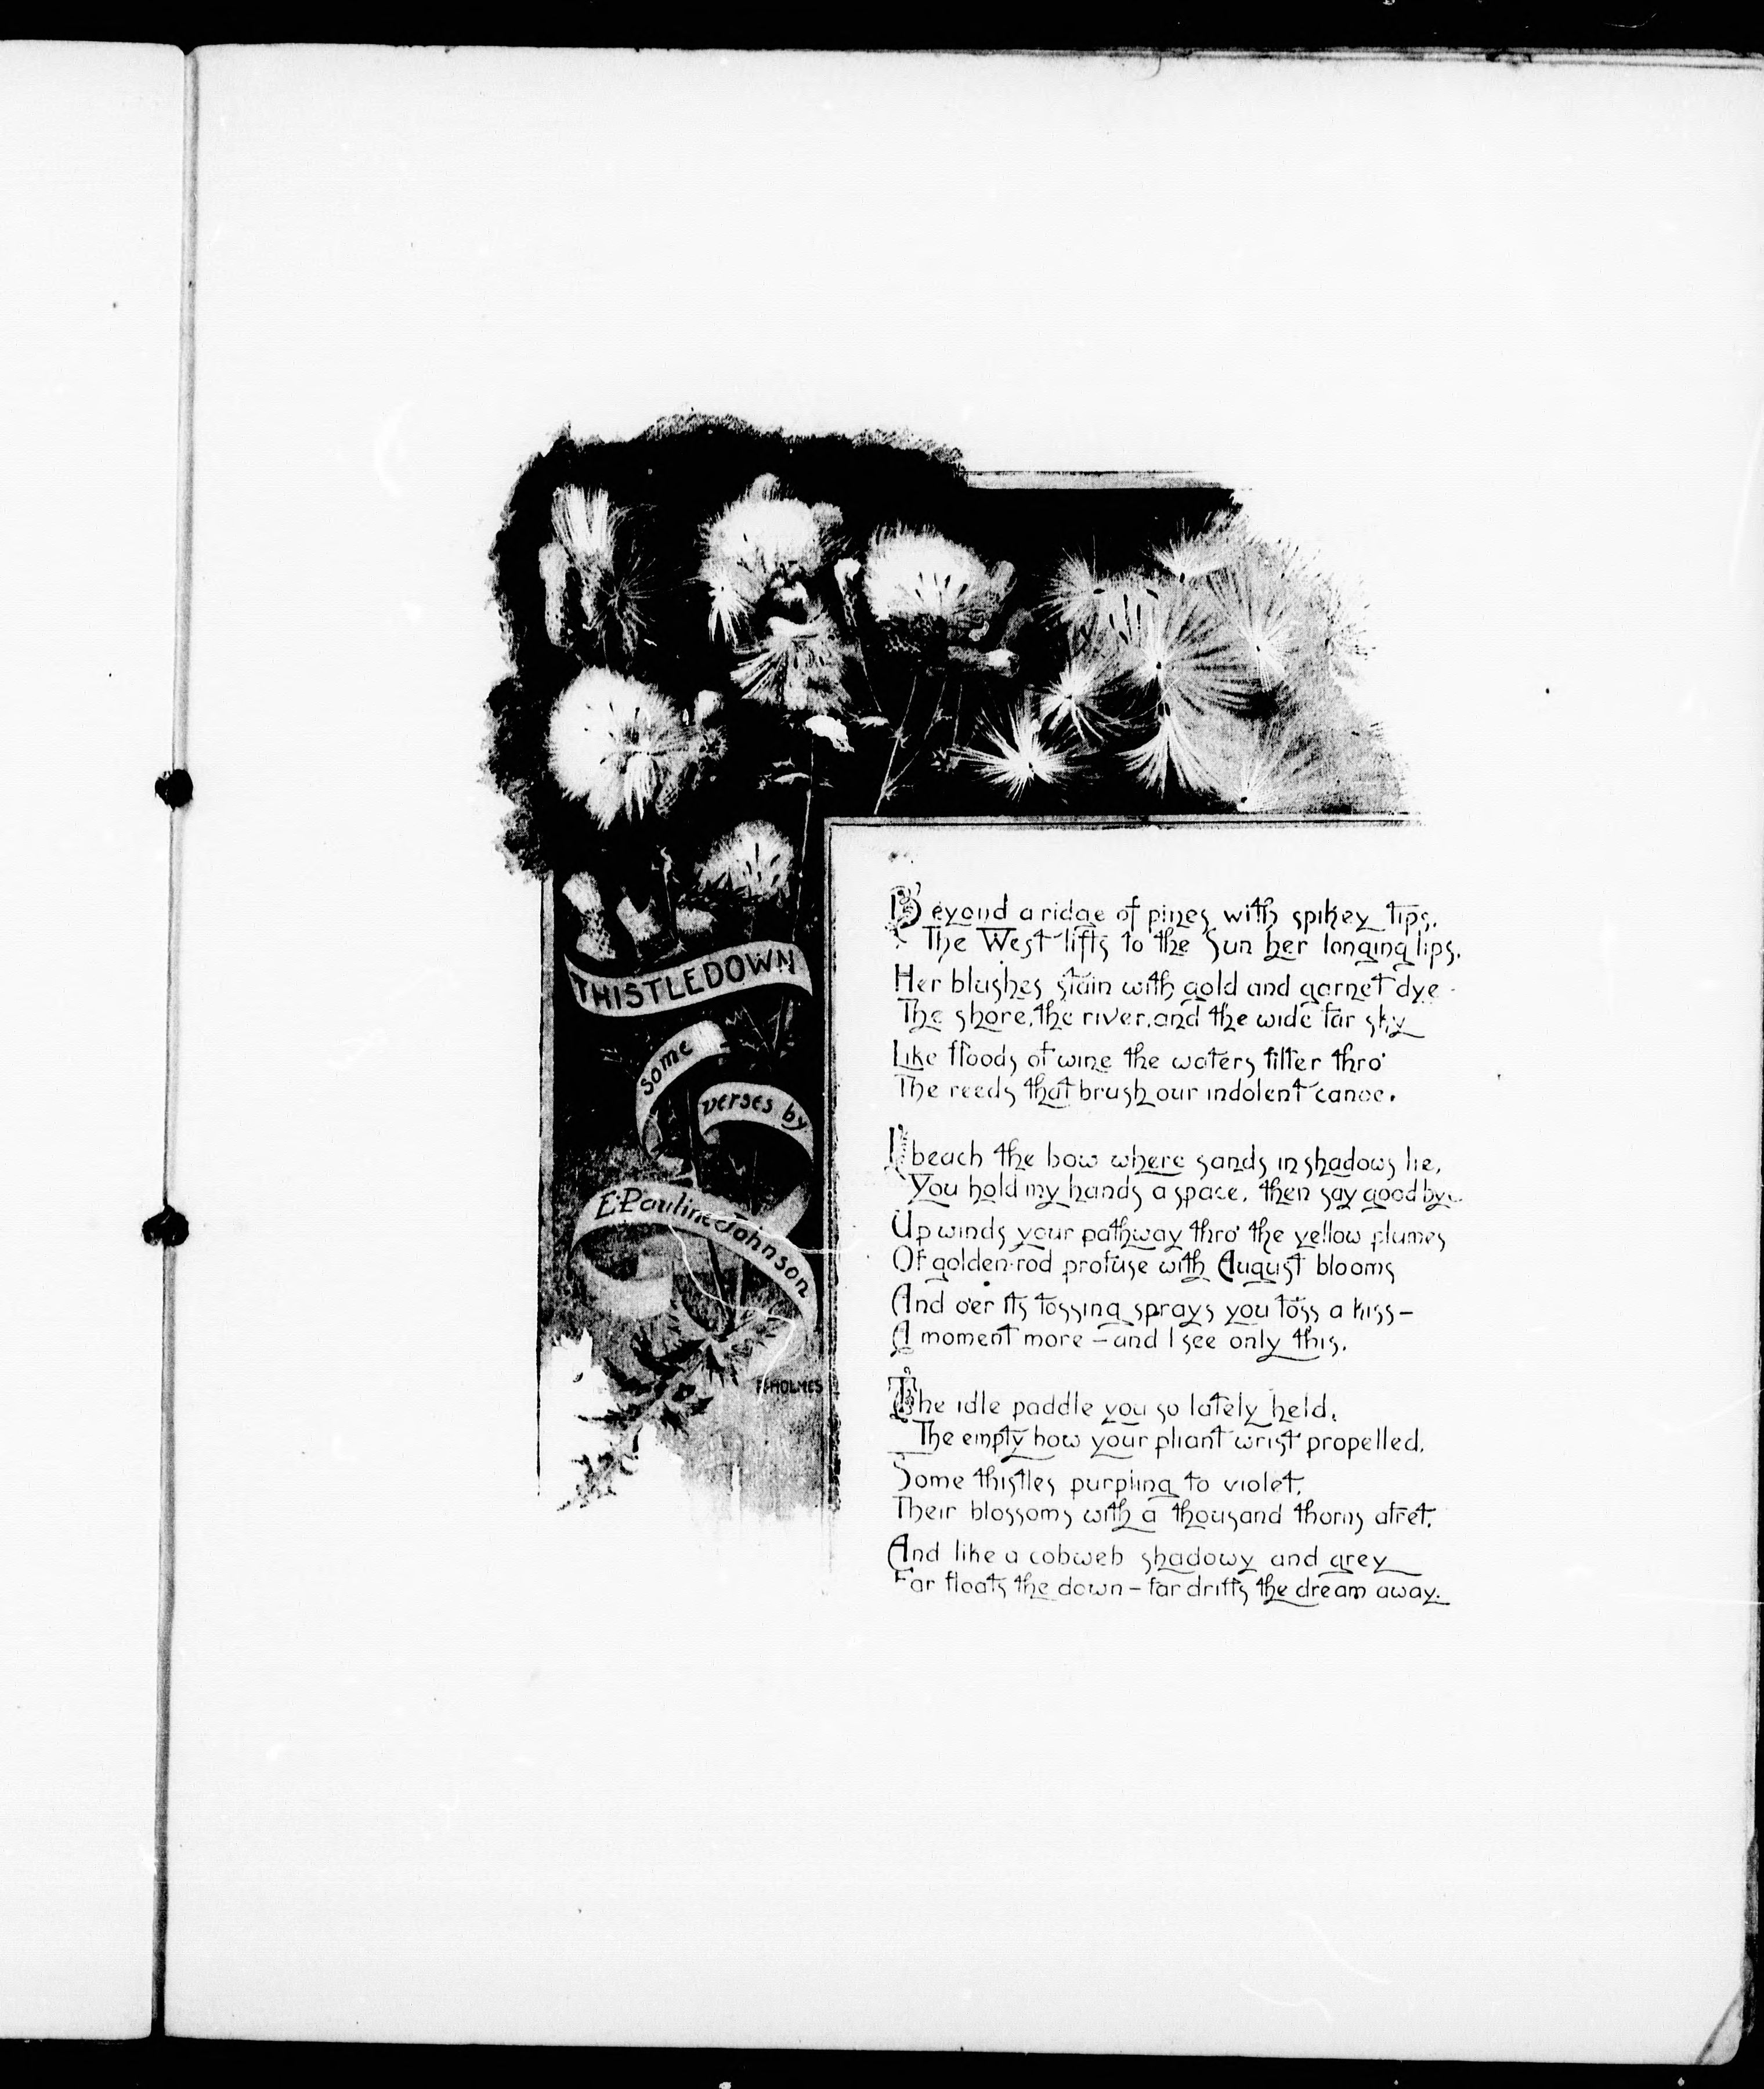 THISTLEDOWN
some
verses by
E. Pauline Johnson
Beyond a ridge of pines with spikey tips,
The West lifts to the Sun her longing lips.
Her blushes stain with gold and garnet dye
The shore, the river, and the wide far sky
Like floods of wine the waters filter thro'
The reeds that brush our indolent canoe.
I beach the bow where sands in shadows lie,
You hold my hands a space, then say goodbye.
Up winds your pathway thro' the yellow plumes
Of golden-rod profuse with August blooms
And o'er its tossing sprays you toss a kiss—
A moment more — and I see only this.
The idle paddle you so lately held,
The empty bow your pliant wrist propelled,
Some thistles purpling to violet,
Their blossoms with a thousand thorns afret,
And like a cobweb shadowy and grey
Far floats the down — far drifts the dream away.
HOLMES